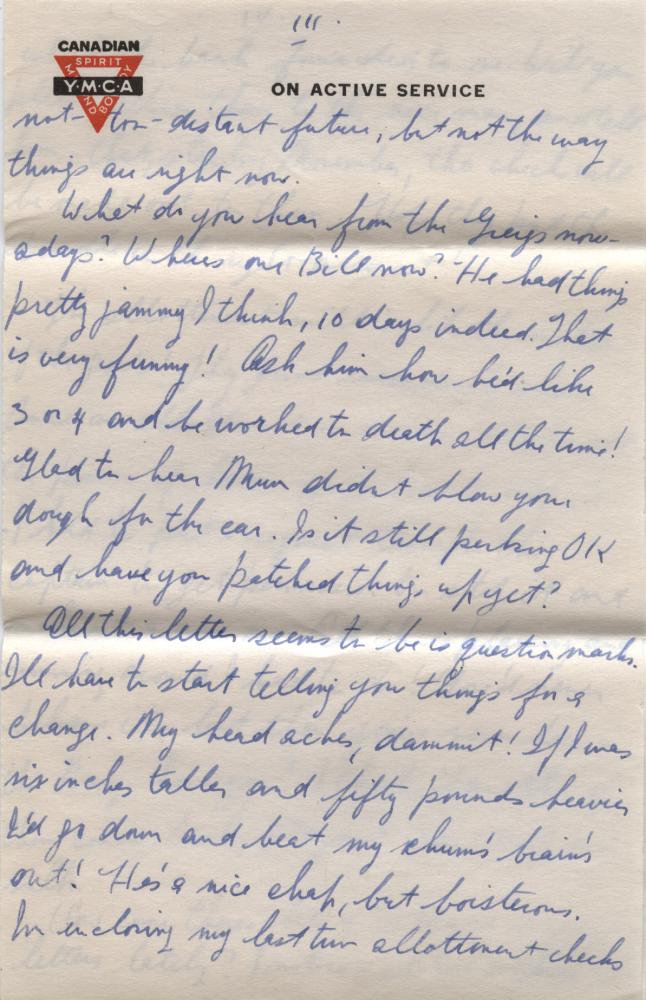 III.
CANADIAN
SPIRIT
Y·M·C·A
MIND BODY
ON ACTIVE SERVICE
not-too-distant future, but not the way
things are right now.
What do you hear from the Greigs now-
adays? Wheres our Bill now? He had things
pretty jammy I think, 10 days indeed. That
is very funny! Ask him how he'd like
3 or 4 and be worked to death all the time!
Glad to hear Mum didnt blow your
dough for the car. Is it still perking OK
and have you patched things up yet?
All this letter seems to be is question marks.
I'll have to start telling you things for a
change. My head aches, dammit! If I was
six inches taller and fifty pounds heavier
I'd go down and beat my chum's brain's
out! He's a nice chap, but boisterous.
Im enclosing my last two allottment checks